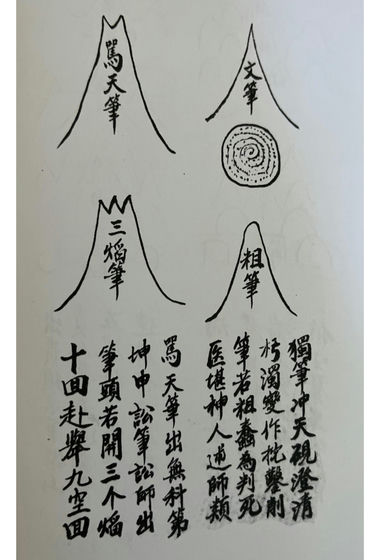 文筆
罵天筆
粗筆
三熖筆
獨筆冲天硯澄清
朽濁變作批鑿則
筆若粗蠢為判死
医堪神人師類
罵天筆出無科第
坤申訟筆訟師出
筆頭若開三个熖
十回赴舉九空回